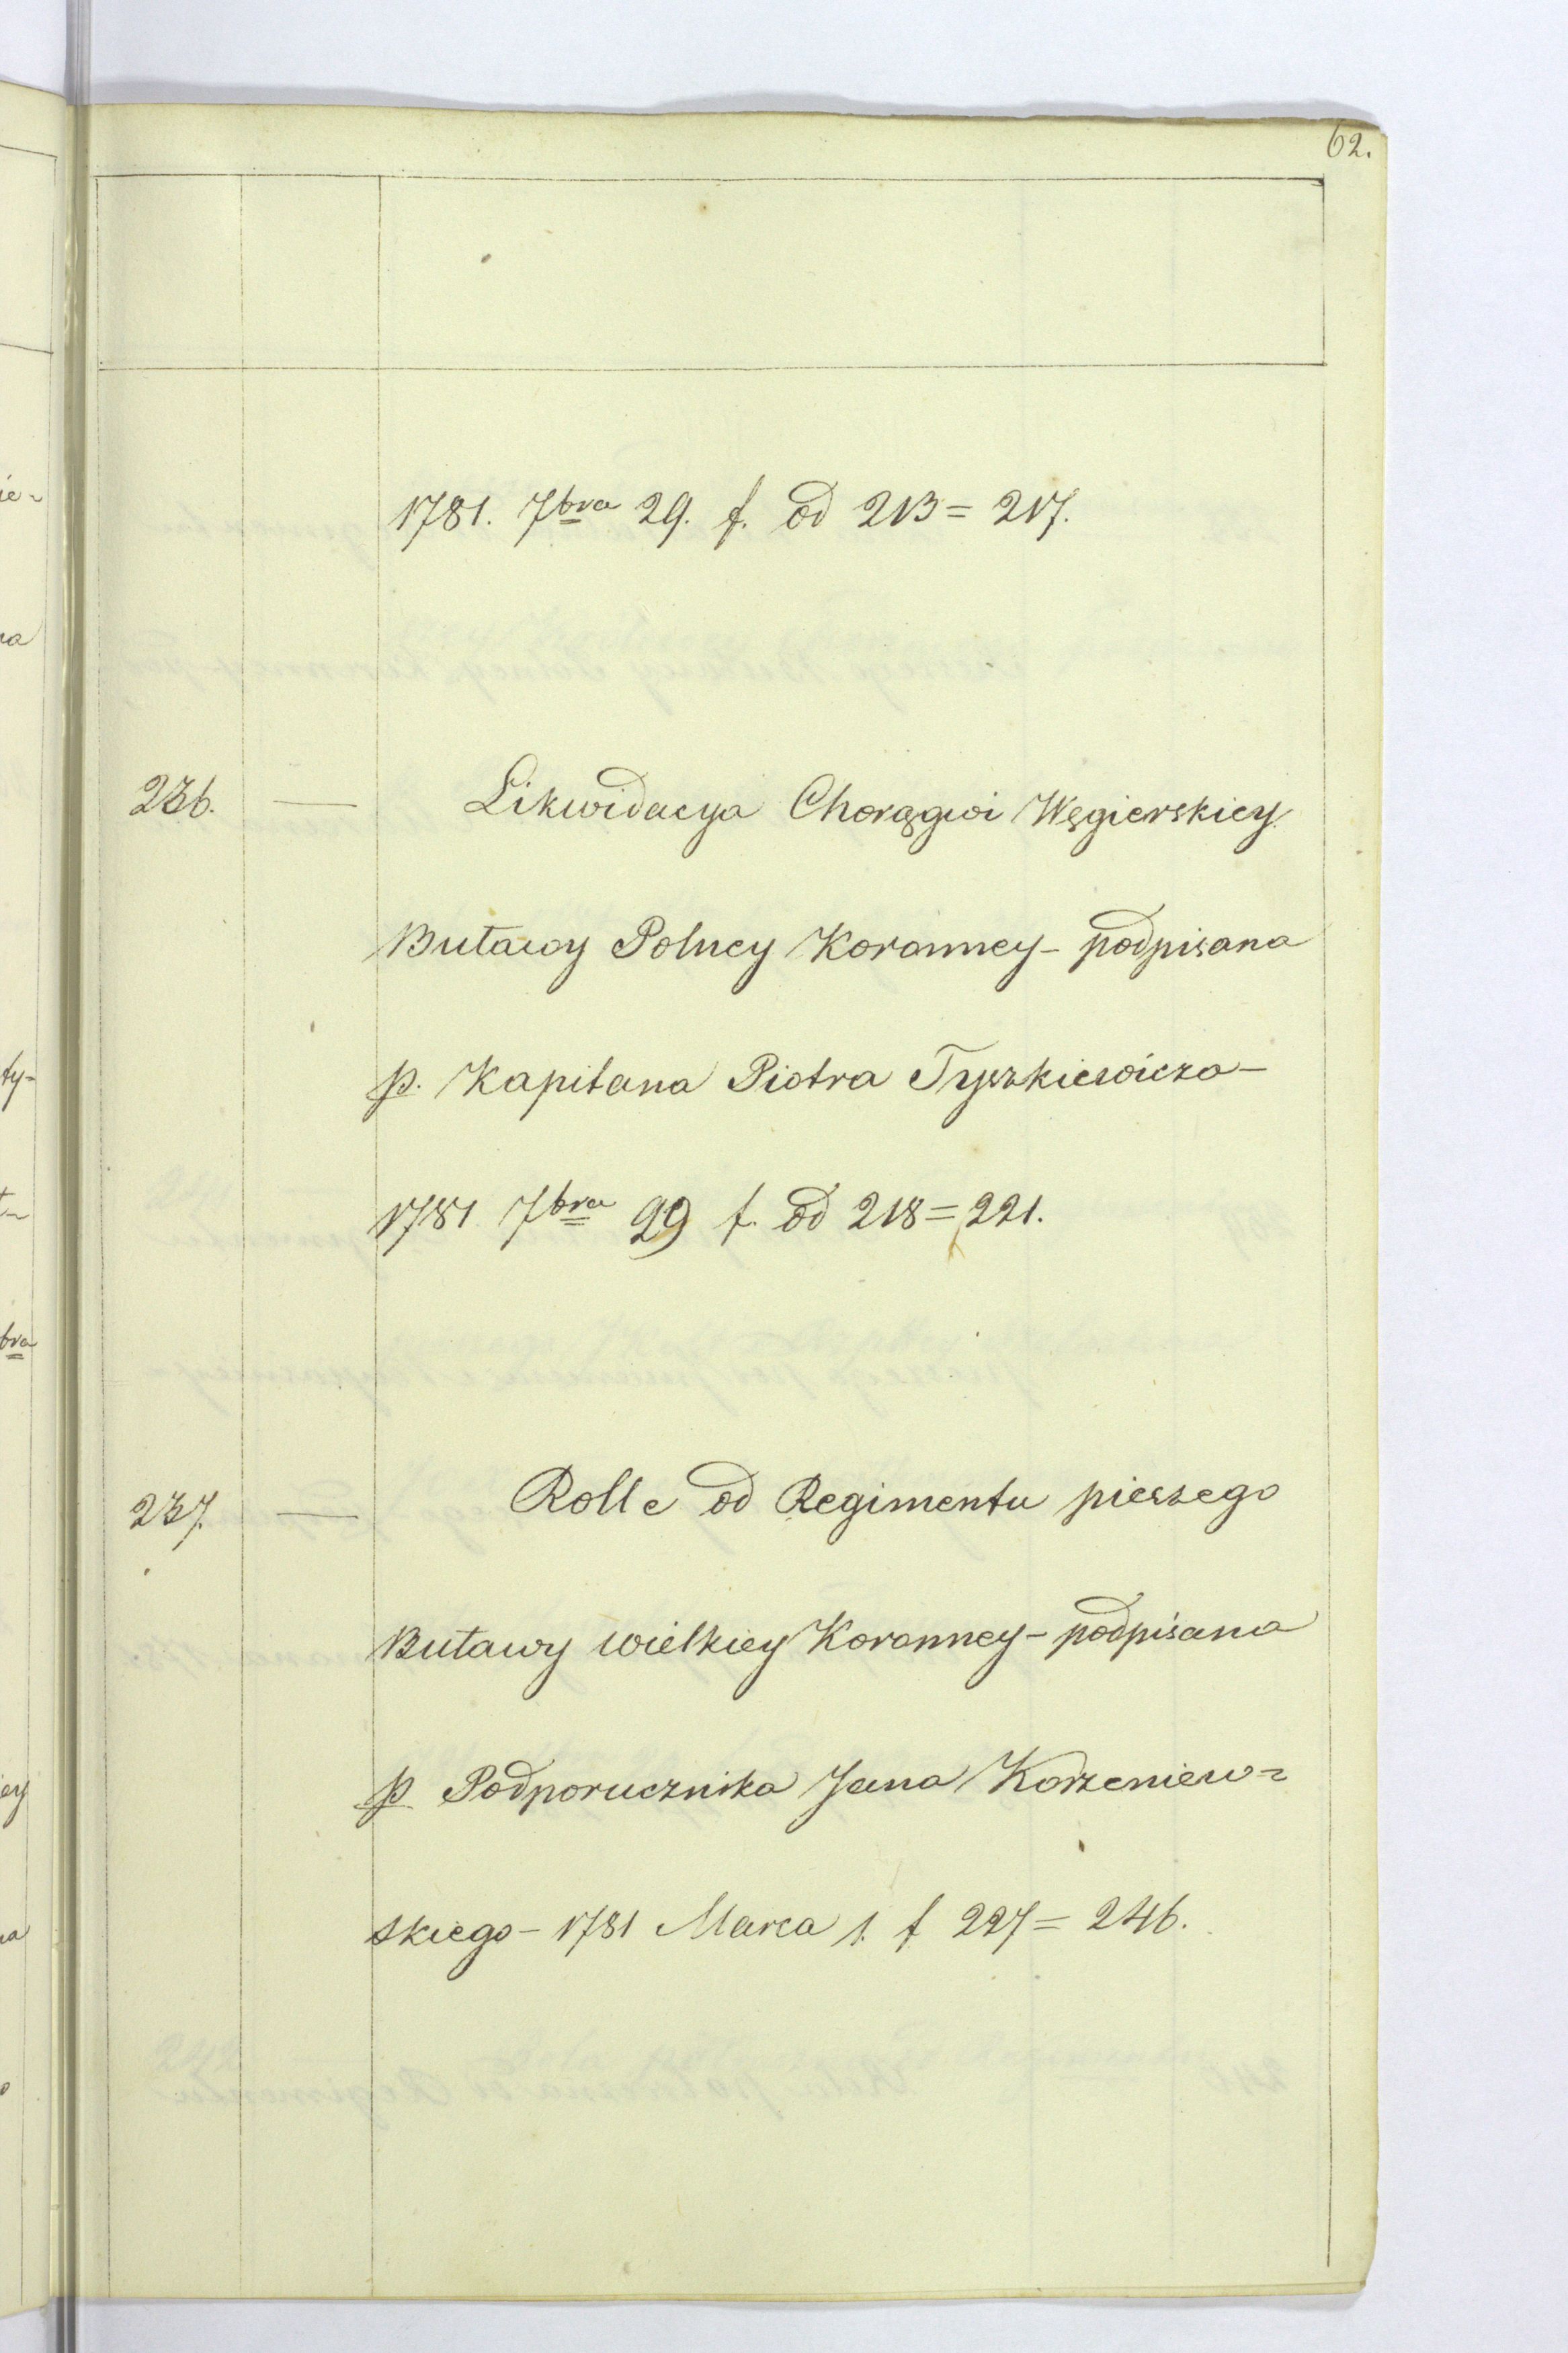 62.
1781. 7bra 29. f. od 213 = 217.
236. — Likwidacya Chorągwi Węgierskiey
Buławy Polney Koronney - podpisana
p. Kapitana Piotra Tyszkiewicza -
1781 7bra 29 f. od 218 = 221.
237. — Rolle od Regimentu pieszego
Buławy wielkiey Koronney - podpisana
p Podporucznika Jana Korzeniew=
skiego - 1781 Marca 1. f 227 = 246.